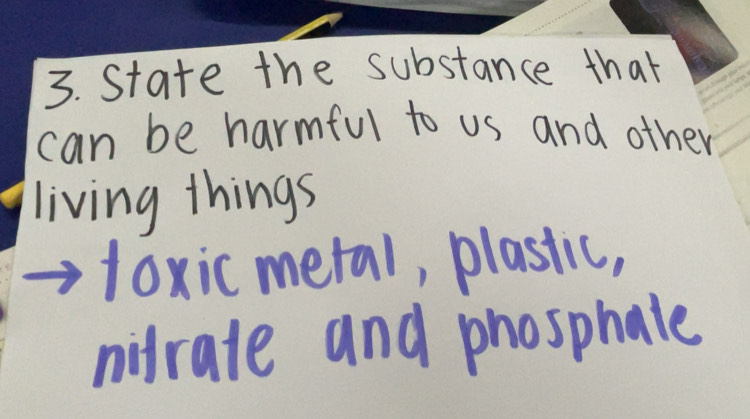 3. State the substance that
can be harmful to us and other
living things
→ toxic metal, plastic,
nitrate and phosphate